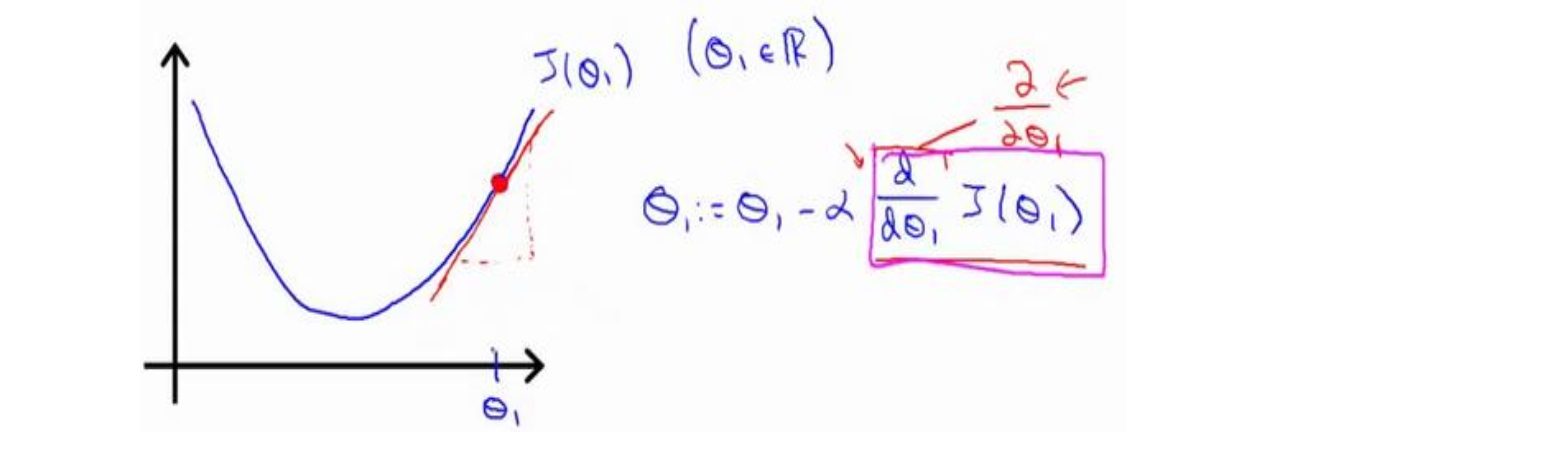 J(θ₁) (θ₁ ∈ ℝ)
∂ ←
∂θ₁
θ₁ := θ₁ - α d/dθ₁ J(θ₁)
θ₁